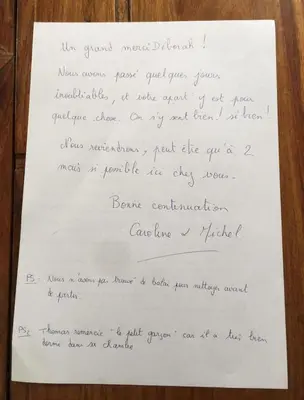 Un grand merci Déborah !
Nous avons passé quelques jours
inoubliables, et votre apart y est pour
quelque chose. On s'y sent bien ! si bien !
Nous reviendrons, peut être qu'à 2
mais si possible ici chez vous.
Bonne continuation
Caroline & Michel
PS: Nous n'avons pas trouvé de balai pour nettoyer avant
de partir.
PS2 Thomas remercie "le petit garçon" car il a très bien
dormi dans sa chambre